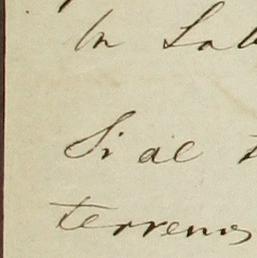 In Lab
Si al t
terrenos